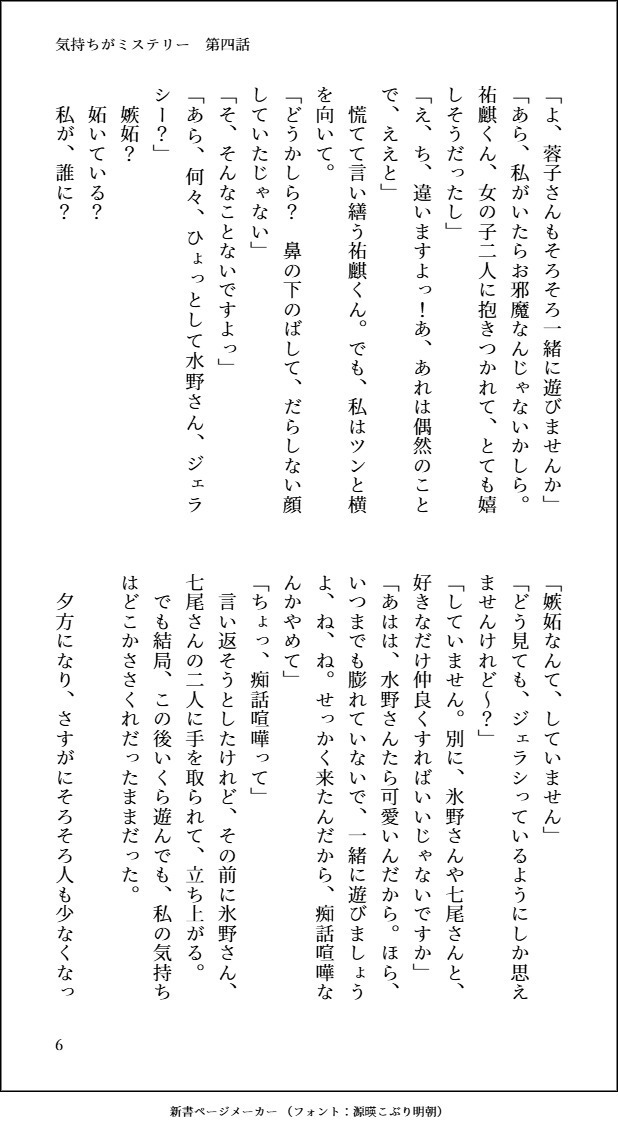 気持ちがミステリー　第四話
「よ、蓉子さんもそろそろ一緒に遊びませんか」
「あら、私がいたらお邪魔なんじゃないかしら。
祐麒くん、女の子二人に抱きつかれて、とても嬉
しそうだったし」
「え、ち、違いますよっ！あ、あれは偶然のこと
で、ええと」
　慌てて言い繕う祐麒くん。でも、私はツンと横
を向いて。
「どうかしら？　鼻の下のばして、だらしない顔
していたじゃない」
「そ、そんなことないですよっ」
「あら、何々、ひょっとして水野さん、ジェラ
シー？」
　嫉妬？
　妬いている？
　私が、誰に？
「嫉妬なんて、していません」
「どう見ても、ジェラシっているようにしか思え
ませんけれど～？」
「していません。別に、氷野さんや七尾さんと、
好きなだけ仲良くすればいいじゃないですか」
「あはは、水野さんたら可愛いんだから。ほら、
いつまでも膨れていないで、一緒に遊びましょう
よ、ね、ね。せっかく来たんだから、痴話喧嘩な
んかやめて」
「ちょっ、痴話喧嘩って」
　言い返そうとしたけれど、その前に氷野さん、
七尾さんの二人に手を取られて、立ち上がる。
　でも結局、この後いくら遊んでも、私の気持ち
はどこかささくれだったままだった。
　夕方になり、さすがにそろそろ人も少なくなっ
6
新書ページメーカー（フォント：源暎こぶり明朝）